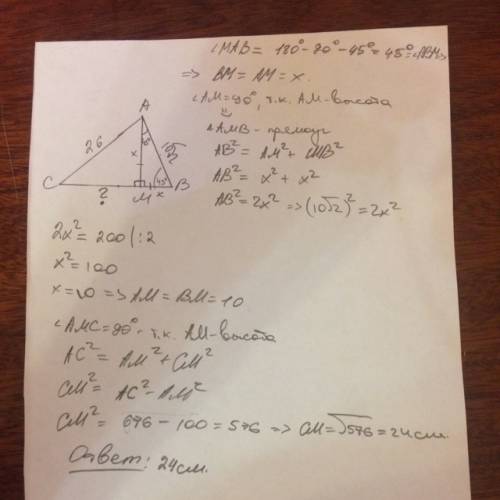 ∠MAB = 180° - 90° - 45° = 45° = ∠ABM =>
=> BM = AM = x.
∠AM = 90°, т.к. AM - высота
△AMB - прямоуг
AB² = AM² + MB²
AB² = x² + x²
AB² = 2x² => (10√2)² = 2x²
A
26
x
45°
10√2
C
?
M
x
45°
B
2x² = 200 | :2
x² = 100
x = 10 => AM = BM = 10
∠AMC = 90° - т.к. AM - высота
AC² = AM² + CM²
CM² = AC² - AM²
CM² = 676 - 100 = 576 => CM = √576 = 24 см.
Ответ: 24 см.